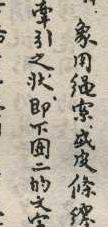 象用繩索或皮條繆
牽引之狀即下圖二的文字